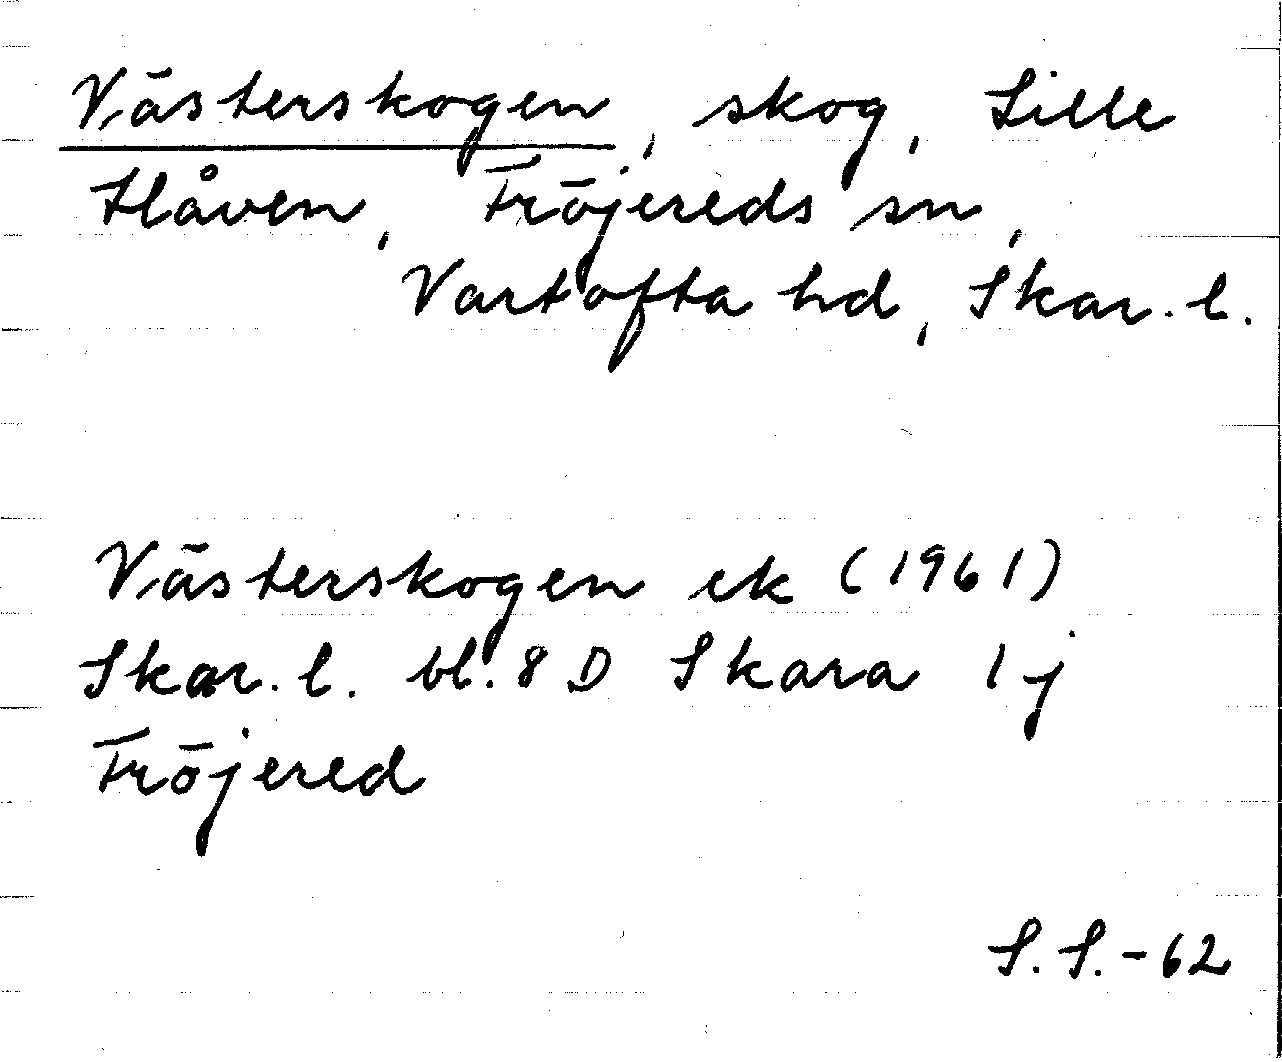 Västerskogen, skog, Lille
Håven, Fröjereds sn,
Vartofta hd, Skar. l.
Västerskogen ek (1961)
Skar. l. bl. 8 D Skara 1 j
Fröjered
S. S. - 62